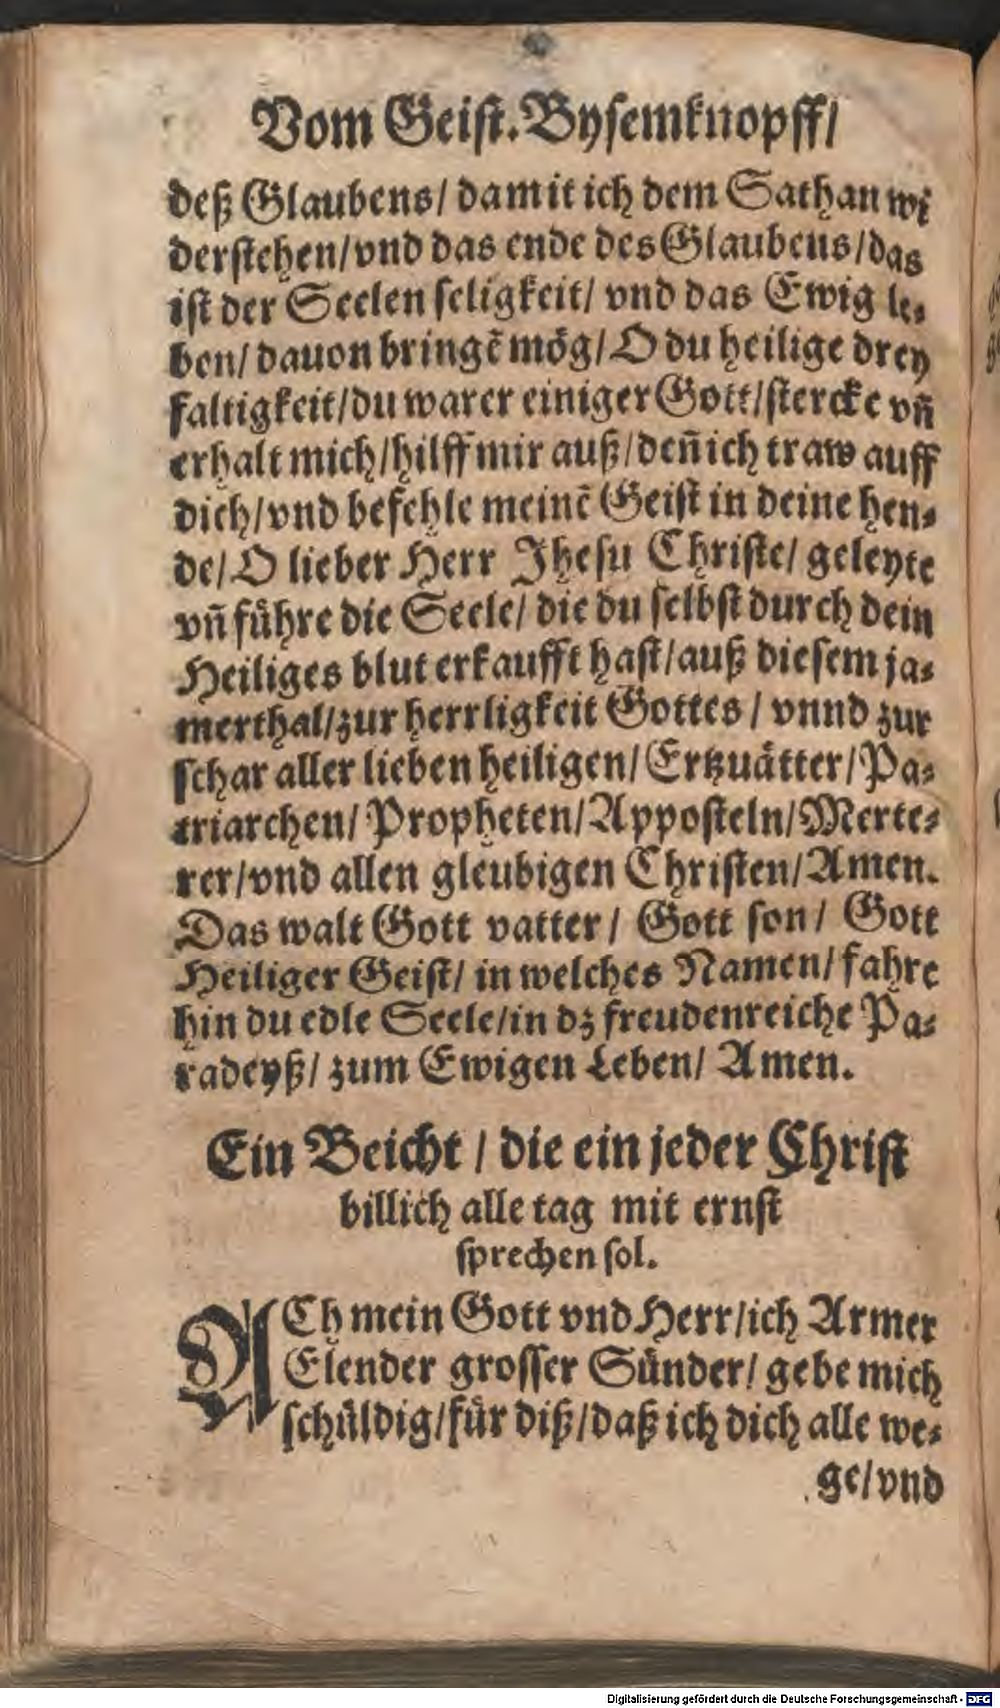 Vom Geiſt. Byſemknopff/
deß Glaubens/ damit ich dem Sathan wi
derſtehen/vnd das ende des Glaubens/das
iſt der Seelen ſeligkeit/ vnd das Ewig le⸗
ben/ dauon bringē mög/ O du heilige drey
faltigkeit/du warer einiger Gott/ſtercke vñ
erhalt mich/hilff mir auß/deñ ich traw auff
dich/vnd befehle meinē Geiſt in deine hen⸗
de/ O lieber Herr Jheſu Chriſte/ geleyte
vñ führe die Seele/ die du ſelbſt durch dein
Heiliges blut erkaufft haſt/auß dieſem ja⸗
merthal/zur herrligkeit Gottes / vnnd zur
ſchar aller lieben heiligen/ Ertzuätter/ Pa⸗
triarchen/ Propheten/ Appoſteln/ Merte⸗
rer/vnd allen gleubigen Chriſten/ Amen.
Das walt Gott vatter / Gott ſon/ Gott
Heiliger Geiſt/ in welches Namen/ fahre
hin du edle Seele/in dz freudenreiche Pa⸗
radeyß/ zum Ewigen Leben/ Amen.
Ein Beicht / die ein jeder Chriſt
billich alle tag mit ernſt
ſprechen ſol.
ACh mein Gott vnd Herr/ich Armer
Elender groſſer Sünder/ gebe mich
ſchüldig/für diß/daß ich dich alle we⸗
ge/vnd
Digitalisierung gefördert durch die Deutsche Forschungsgemeinschaft - DFG